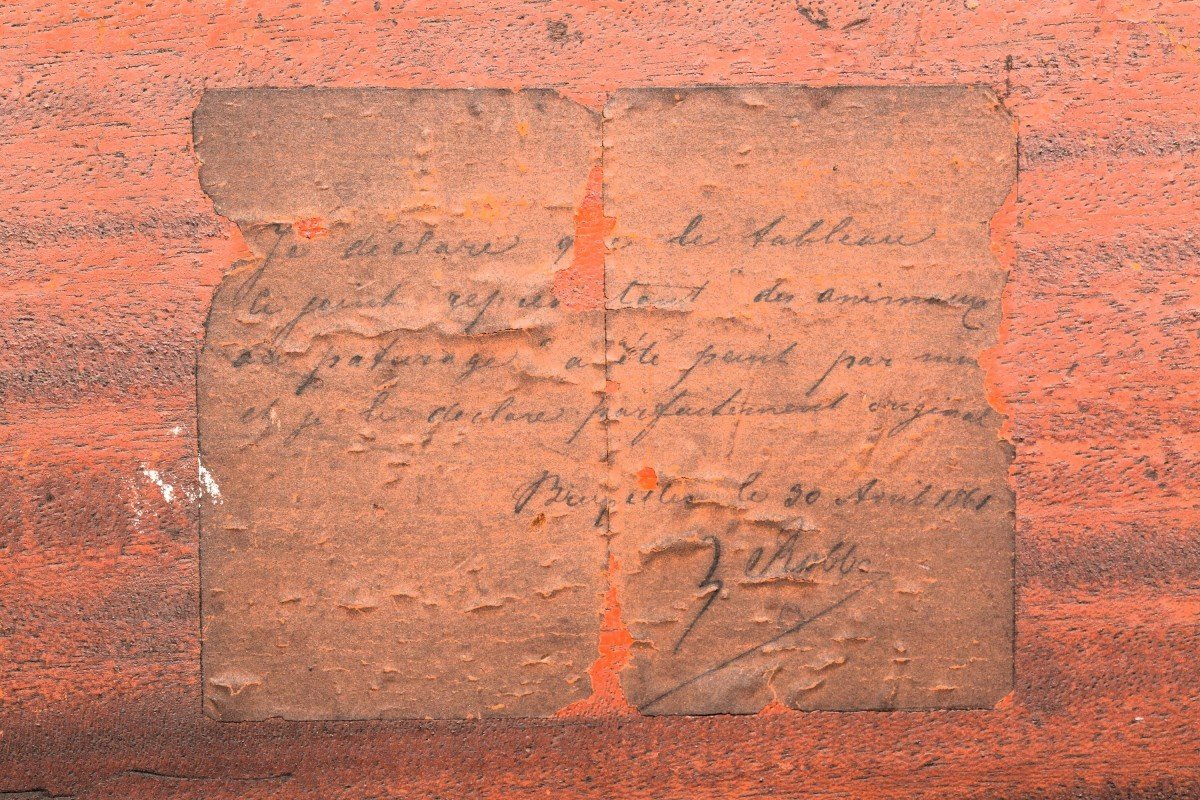 Je déclare que le tableau
ci joint représentant des animaux
au paturage a été peint par moi
et je le déclare parfaitement original
Bruxelles le 30 Avril 1861
Robbe